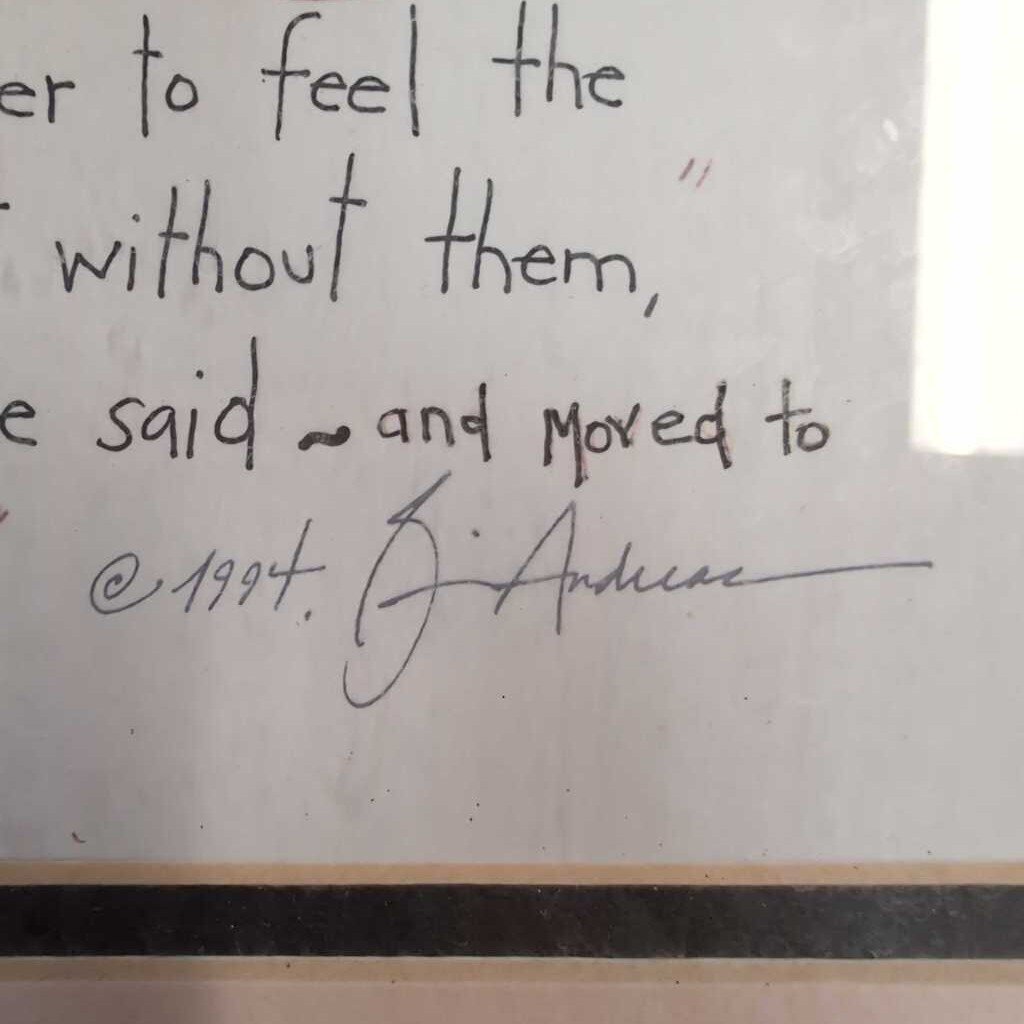 er to feel the
without them,"
e said ~ and moved to
© 1994. B. Andreas